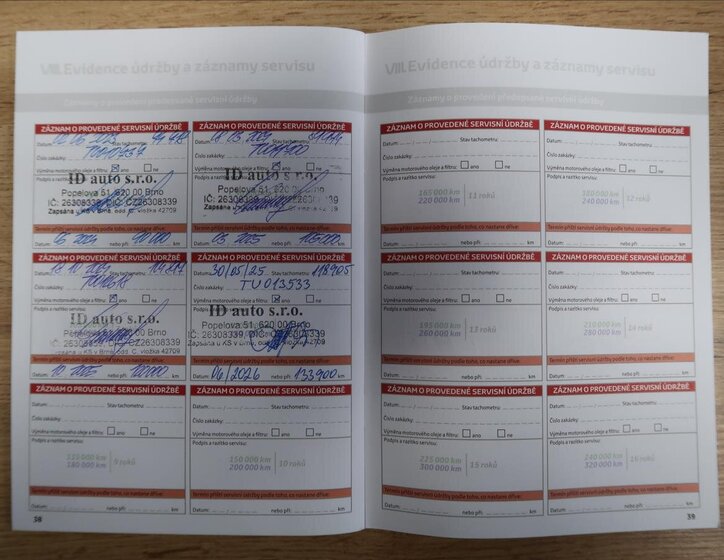 VIII. Evidence údržby a záznamy servisu
Záznamy o provedení předepsané servisní údržby
ZÁZNAM O PROVEDENÉ SERVISNÍ ÚDRŽBĚ
Datum: Stav tachometru:
Číslo zakázky:
Výměna motorového oleje a filtru: ano ne
Podpis a razítko servisu:
ID auto s.r.o.
Popelova 51, 620 00 Brno
IČ: 26308339 DIČ: CZ26308339
Zapsána u KS v Brně, odd. C, vložka 42709
Termín příští servisní údržby podle toho, co nastane dříve:
nebo při: km
ZÁZNAM O PROVEDENÉ SERVISNÍ ÚDRŽBĚ
Datum: Stav tachometru:
Číslo zakázky:
Výměna motorového oleje a filtru: ano ne
Podpis a razítko servisu:
ID auto s.r.o.
Popelova 51, 620 00 Brno
IČ: 26308339
Termín příští servisní údržby podle toho, co nastane dříve:
03 2025 nebo při: km
ZÁZNAM O PROVEDENÉ SERVISNÍ ÚDRŽBĚ
Datum: 18 10 2024 Stav tachometru:
Výměna motorového oleje a filtru: ano ne
Podpis a razítko servisu:
ID auto s.r.o.
Popelova 51, 620 00 Brno
IČ: 26308339 DIČ: CZ26308339
Zapsána u KS v Brně, odd. C, vložka 42709
Termín příští servisní údržby podle toho, co nastane dříve:
10 2025 nebo při: km
ZÁZNAM O PROVEDENÉ SERVISNÍ ÚDRŽBĚ
30/05/25 Stav tachometru: 118905
TU013533
Výměna motorového oleje a filtru: ano ne
ID auto s.r.o.
Popelova 51, 620 00 Brno
IČ: 26308339 DIČ: CZ26308339
Zapsána u KS v Brně, odd. C, vložka 42709
Termín příští servisní údržby podle toho, co nastane dříve:
06/2026 nebo při: 133900 km
ZÁZNAM O PROVEDENÉ SERVISNÍ ÚDRŽBĚ
Datum: Stav tachometru:
Číslo zakázky:
Výměna motorového oleje a filtru: ano ne
Podpis a razítko servisu:
135 000 km
180 000 km
9 roků
Termín příští servisní údržby podle toho, co nastane dříve:
Datum: nebo při: km
ZÁZNAM O PROVEDENÉ SERVISNÍ ÚDRŽBĚ
Datum: Stav tachometru:
Číslo zakázky:
Výměna motorového oleje a filtru: ano ne
Podpis a razítko servisu:
150 000 km
200 000 km
10 roků
Termín příští servisní údržby podle toho, co nastane dříve:
Datum: nebo při: km
38
VIII. Evidence údržby a záznamy servisu
Záznamy o provedení předepsané servisní údržby
ZÁZNAM O PROVEDENÉ SERVISNÍ ÚDRŽBĚ
Datum: Stav tachometru:
Číslo zakázky:
Výměna motorového oleje a filtru: ano ne
Podpis a razítko servisu:
165 000 km
220 000 km
11 roků
Termín příští servisní údržby podle toho, co nastane dříve:
Datum: nebo při: km
ZÁZNAM O PROVEDENÉ SERVISNÍ ÚDRŽBĚ
Datum: Stav tachometru:
Číslo zakázky:
Výměna motorového oleje a filtru: ano ne
Podpis a razítko servisu:
180 000 km
240 000 km
12 roků
Termín příští servisní údržby podle toho, co nastane dříve:
Datum: nebo při: km
ZÁZNAM O PROVEDENÉ SERVISNÍ ÚDRŽBĚ
Datum: Stav tachometru:
Číslo zakázky:
Výměna motorového oleje a filtru: ano ne
Podpis a razítko servisu:
195 000 km
260 000 km
13 roků
Termín příští servisní údržby podle toho, co nastane dříve:
Datum: nebo při: km
ZÁZNAM O PROVEDENÉ SERVISNÍ ÚDRŽBĚ
Datum: Stav tachometru:
Číslo zakázky:
Výměna motorového oleje a filtru: ano ne
Podpis a razítko servisu:
210 000 km
280 000 km
14 roků
Termín příští servisní údržby podle toho, co nastane dříve:
Datum: nebo při: km
ZÁZNAM O PROVEDENÉ SERVISNÍ ÚDRŽBĚ
Datum: Stav tachometru:
Číslo zakázky:
Výměna motorového oleje a filtru: ano ne
Podpis a razítko servisu:
225 000 km
300 000 km
15 roků
Termín příští servisní údržby podle toho, co nastane dříve:
Datum: nebo při: km
ZÁZNAM O PROVEDENÉ SERVISNÍ ÚDRŽBĚ
Datum: Stav tachometru:
Číslo zakázky:
Výměna motorového oleje a filtru: ano ne
Podpis a razítko servisu:
240 000 km
320 000 km
16 roků
Termín příští servisní údržby podle toho, co nastane dříve:
Datum: nebo při: km
39